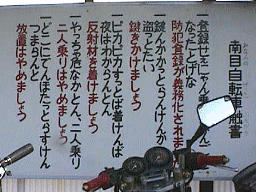 南目自転車触書
一、登録せぇにゃん車んごつ
なったとしげな
防犯登録が義務化されま
一、鍵んかかっとらんけんが
盗っとたい
鍵をかけましょう
一、ピカピカすっとば着けんば
夜はわからんとん
反射材を着けましょう
一、やっちゃ危なかとん、二人乗り
二人乗りはやめましょう
一、どこにでんほたっとらすけん
つまらんと
放置はやめましょう